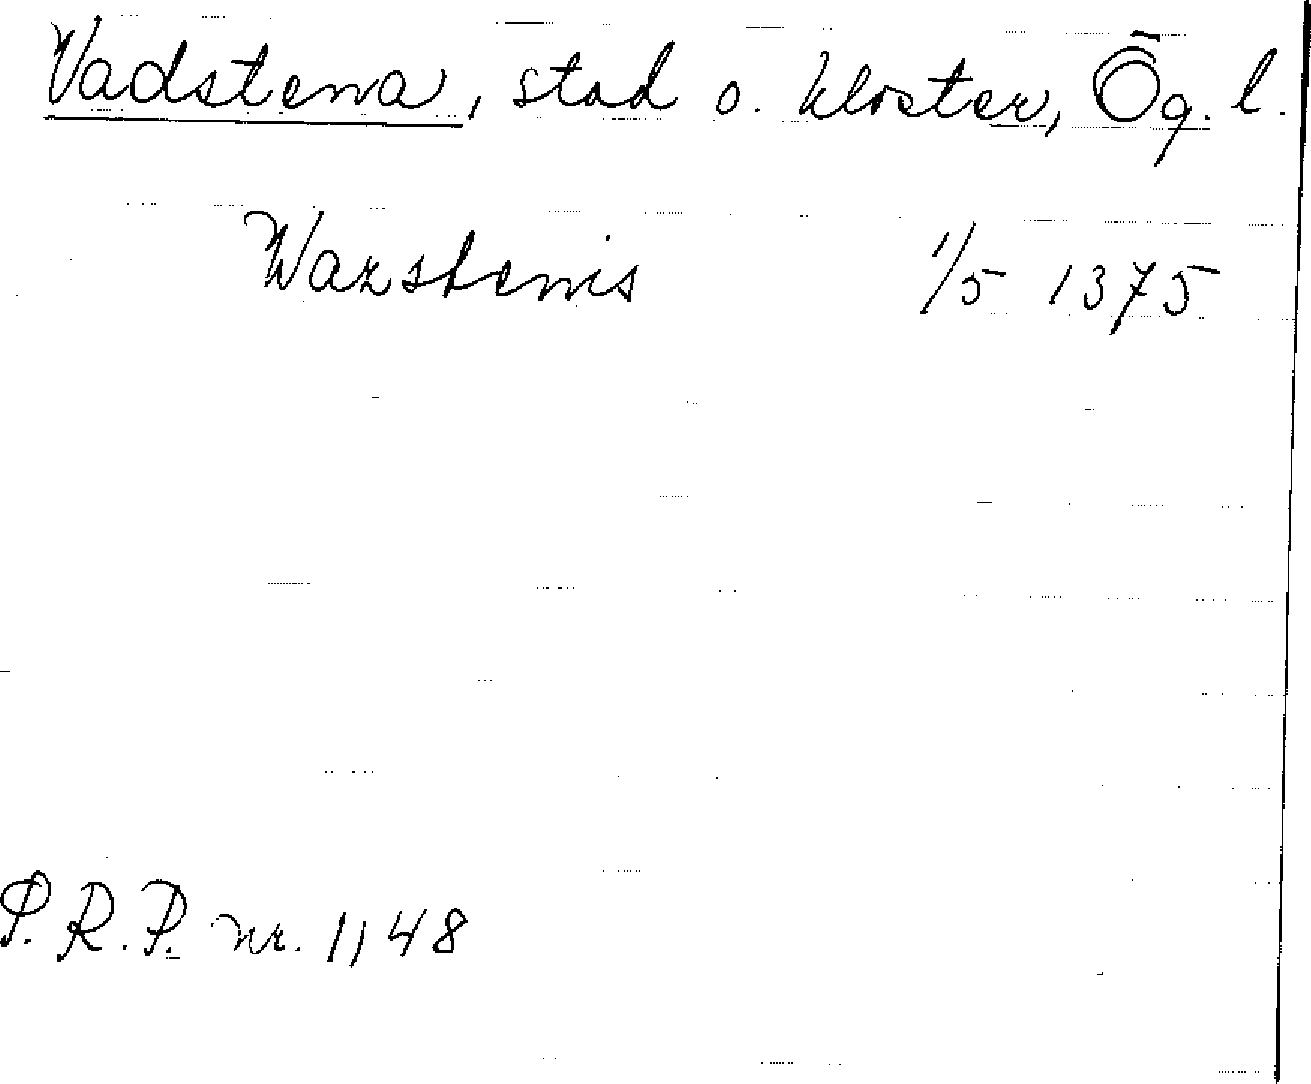 Vadstena, stad o. kloster, Ög. l.
Wazstenis 1/5 1375
P.R.P. nr. 1148